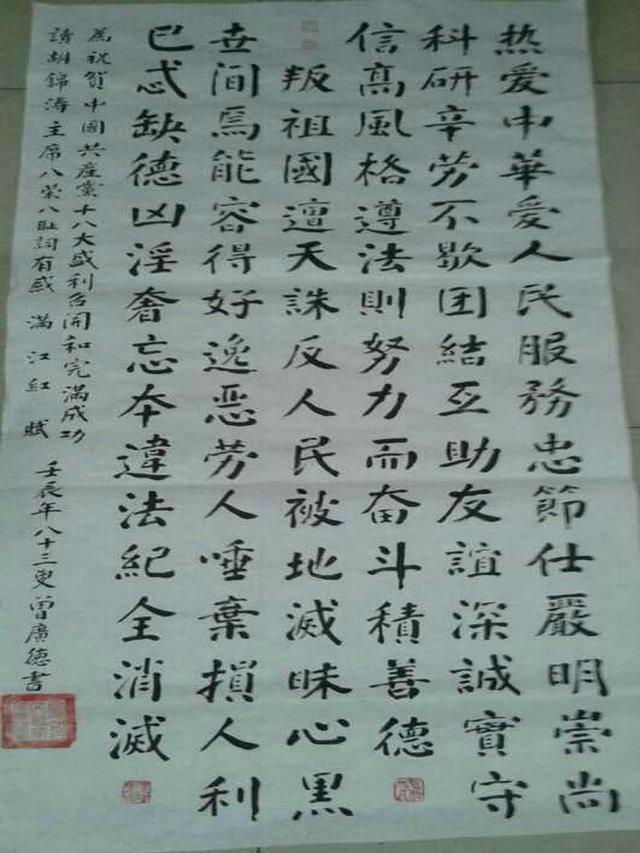 热爱中華爱人民服務忠節仕嚴明崇尚
科研辛劳不歇团結互助友誼深誠實守
信高風格遵法則努力而奋斗積善德
叛祖國遭天誅反人民被地滅昧心黑
世间焉能容得好逸恶劳人唾棄損人利
已忒缺德凶淫奢忘本違法紀全消滅
為祝賀中國共産黨十八大盛利召開和完满成功
請胡錦濤主席八荣八耻詞有感 满江红 賦
壬辰年八十三叟曾廣德書